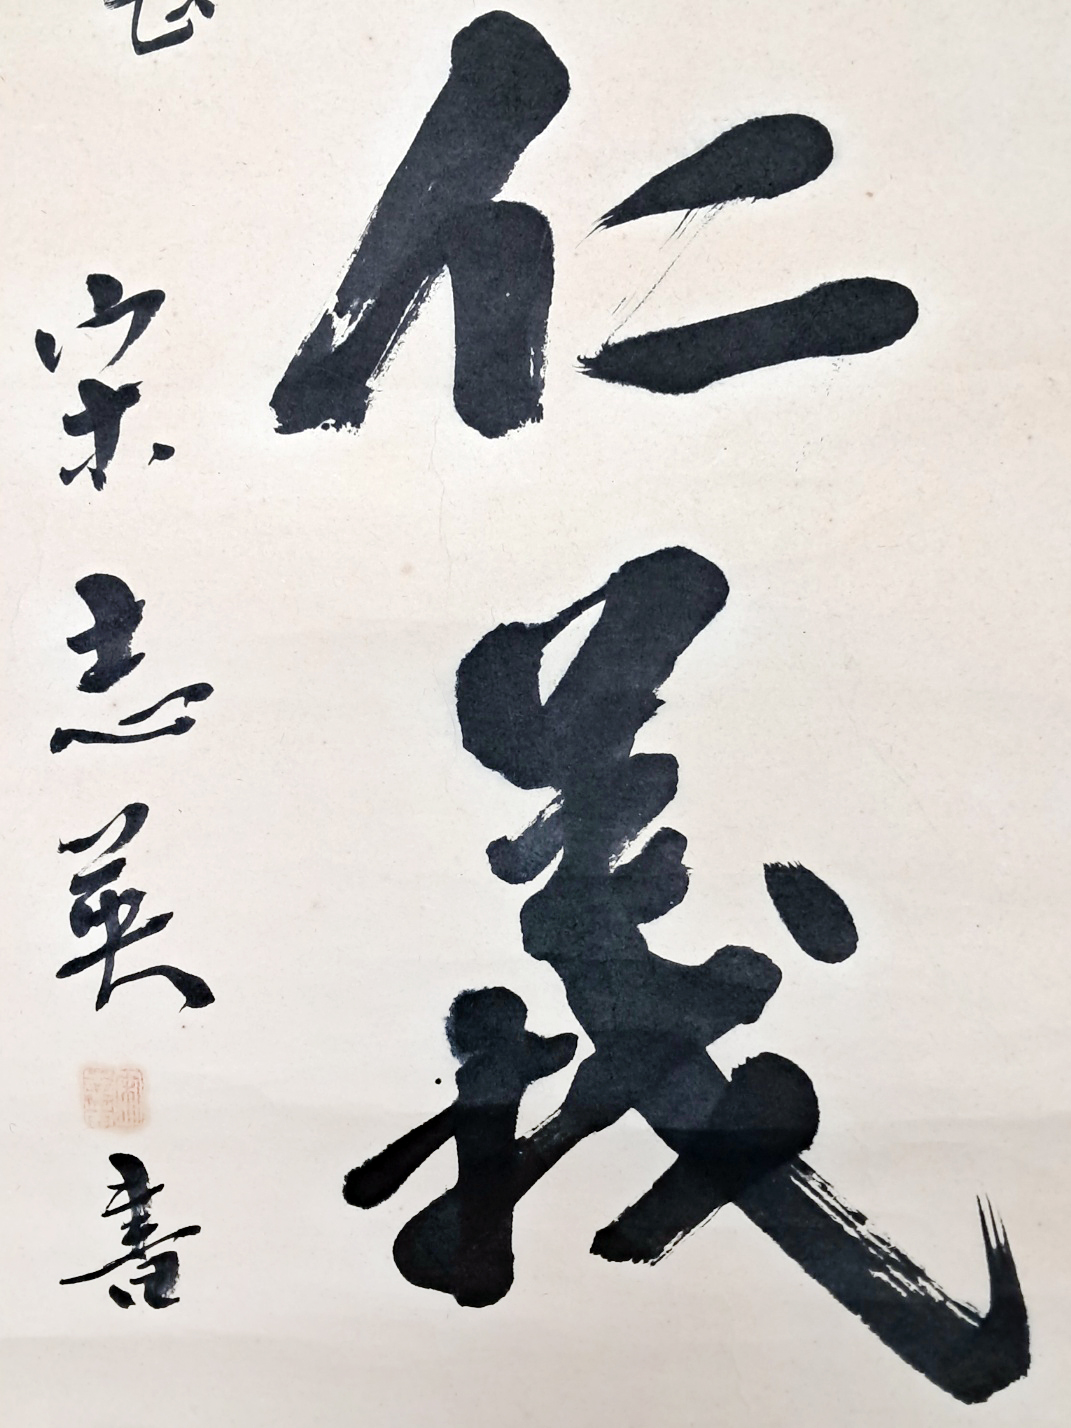 仁義
宋志英書